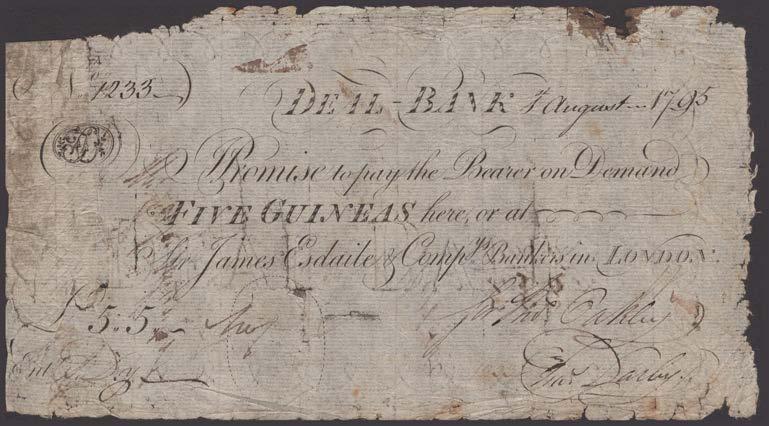 1233
DEAL-BANK 4 August 1795
Promise to pay the Bearer on Demand
FIVE GUINEAS here, or at
Sir James Esdaile & Comp.y Bankers in LONDON.
£5:5
For Tho.s Oakley
Ent.d